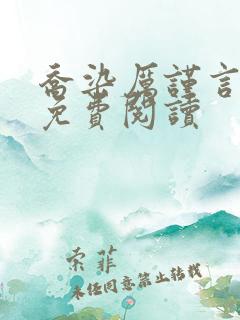 喬染厲謹言
免費閱讀
索菲
未经同意禁止转载